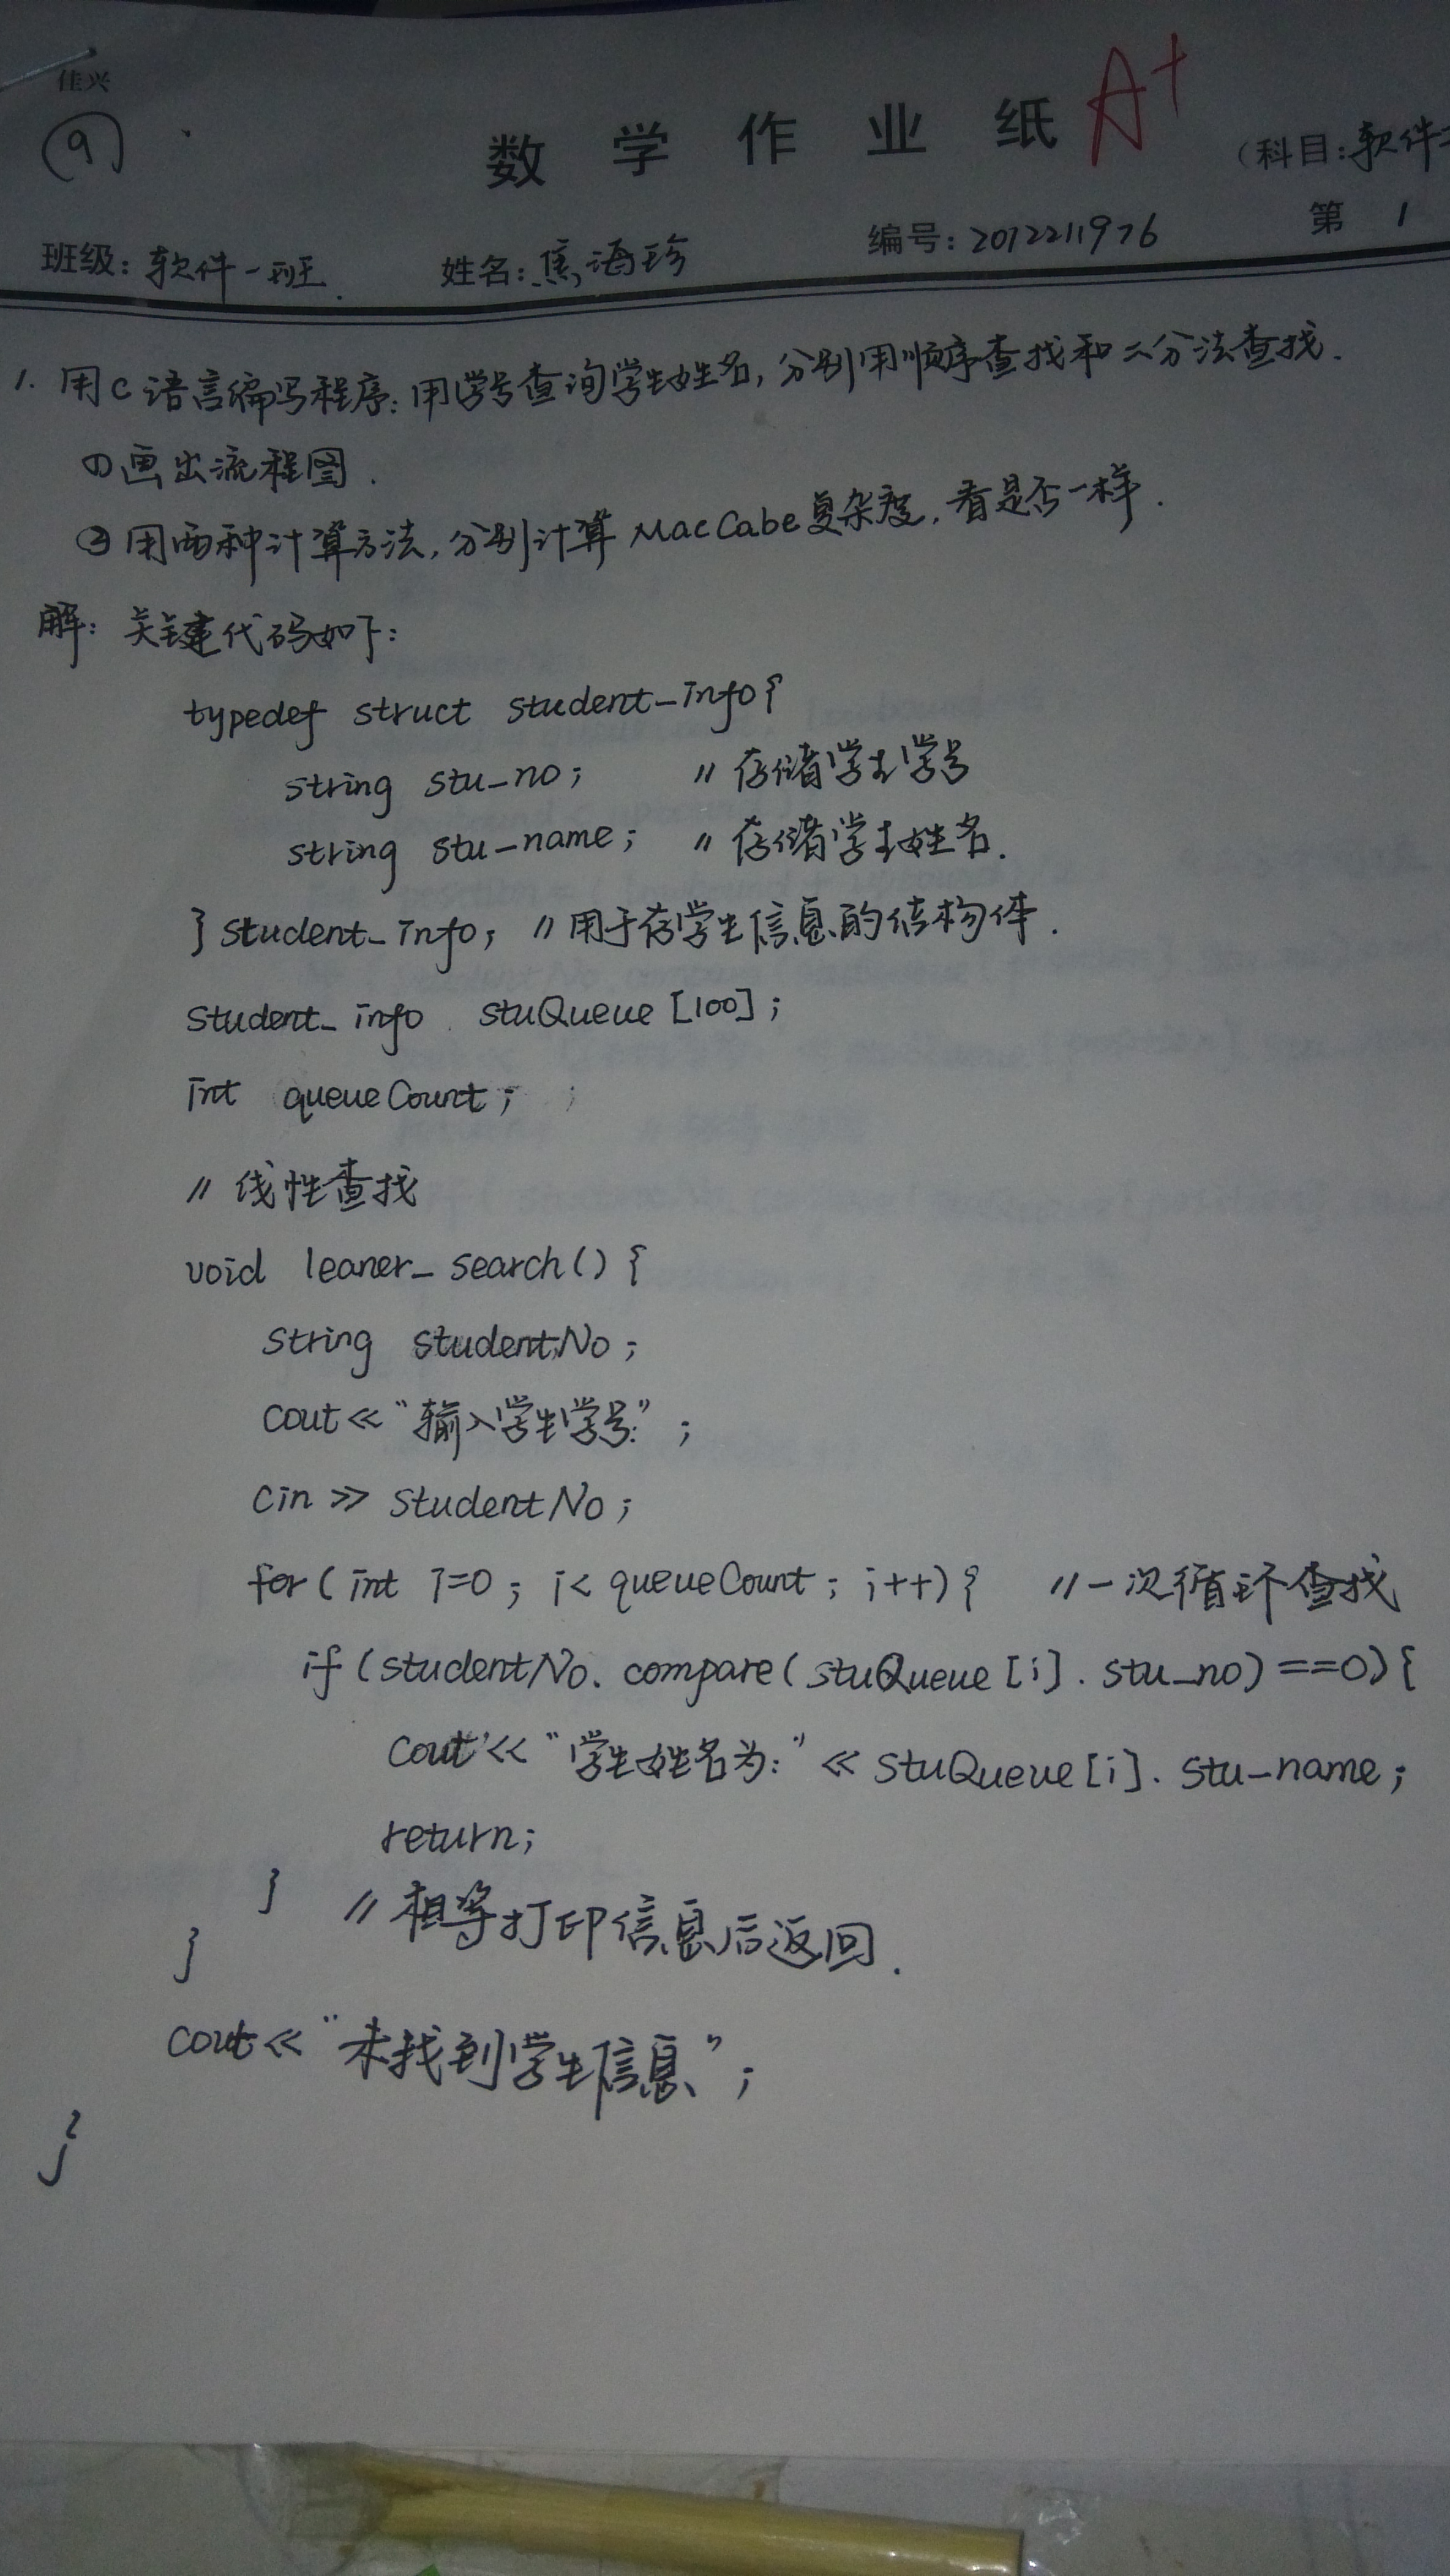 佳兴
⑨
数学作业纸 A+
(科目:软件
班级:软件一班. 姓名:焦海珍 编号:2012211976 第 1
1. 用C语言编写程序:用学号查询学生姓名,分别用顺序查找和二分法查找.
①画出流程图.
②用两种计算方法,分别计算MacCabe复杂度,看是否一样.
解: 关键代码如下:
typedef struct student_info{
string stu_no; //存储学生学号
string stu_name; //存储学生姓名.
}student_info; //用于存学生信息的结构体.
student_info stuQueue[100];
int queueCount;
//线性查找
void leaner_search(){
string studentNo;
cout<<"输入学生学号:";
cin>>studentNo;
for(int i=0; i<queueCount; i++){ //一次循环查找
if(studentNo.compare(stuQueue[i].stu_no)==0){
cout<<"学生姓名为:"<<stuQueue[i].stu_name;
return;
} //相等打印信息后返回.
}
cout<<"未找到学生信息";
}